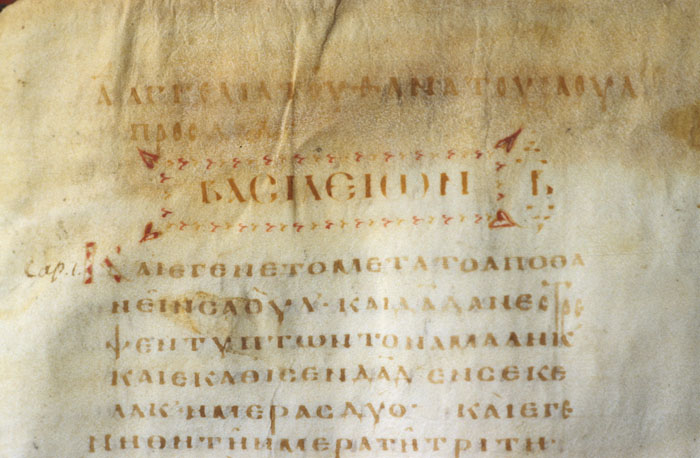 Α ΑΓΓΕΛΙΑ ΤΟΥ ΘΑΝΑΤΟΥ ΣΑΟΥΛ
ΠΡΟΣ ΔΑΔ
ΒΑΣΙΛΕΙΩΝ Β
Cap. 1. ΚΑΙΕΓΕΝΕΤΟΜΕΤΑΤΟΑΠΟΘΑ
ΝΕΙΝΣΑΟΥΛ· ΚΑΙΔΑΔΑΝΕΣΤΡΕ
ΦΕΝΤΥΠΤΩΝΤΟΝΑΜΑΛΗΚ
ΚΑΙΕΚΑΘΙΣΕΝΔΑΔΕΝΣΕΚΕ
ΛΑΚ ΗΜΕΡΑΣΔΥΟ· ΚΑΙΕΓΕ
ΝΗΘΗΤΗΗΜΕΡΑΤΗΤΡΙΤΗ·